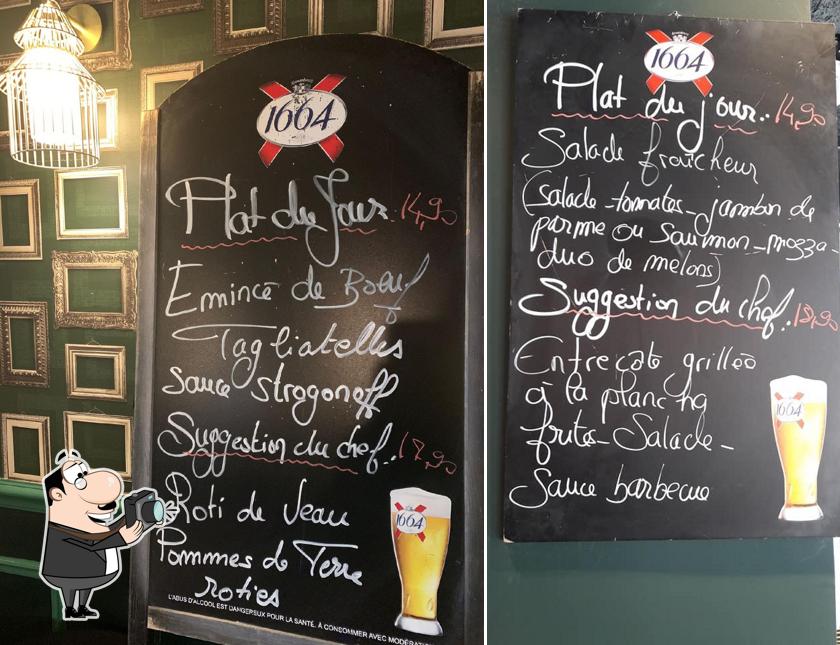 1664
Plat du Jour 14,90
Emincé de Bœuf
Tagliatelles
Sauce Strogonoff
Suggestion du chef. 17,90
Roti de Veau
Pommes de Terre
roties
1664
L'ABUS D'ALCOOL EST DANGEREUX POUR LA SANTÉ. À CONSOMMER AVEC
1664
Plat du jour.. 14,90
Salade fraîcheur
(salade - tomates - jambon de
parme ou saumon - mozza -
duo de melons)
Suggestion du chef.
Entrecôte grillée
à la plancha
frites - Salade -
Sauce barbecue
1664